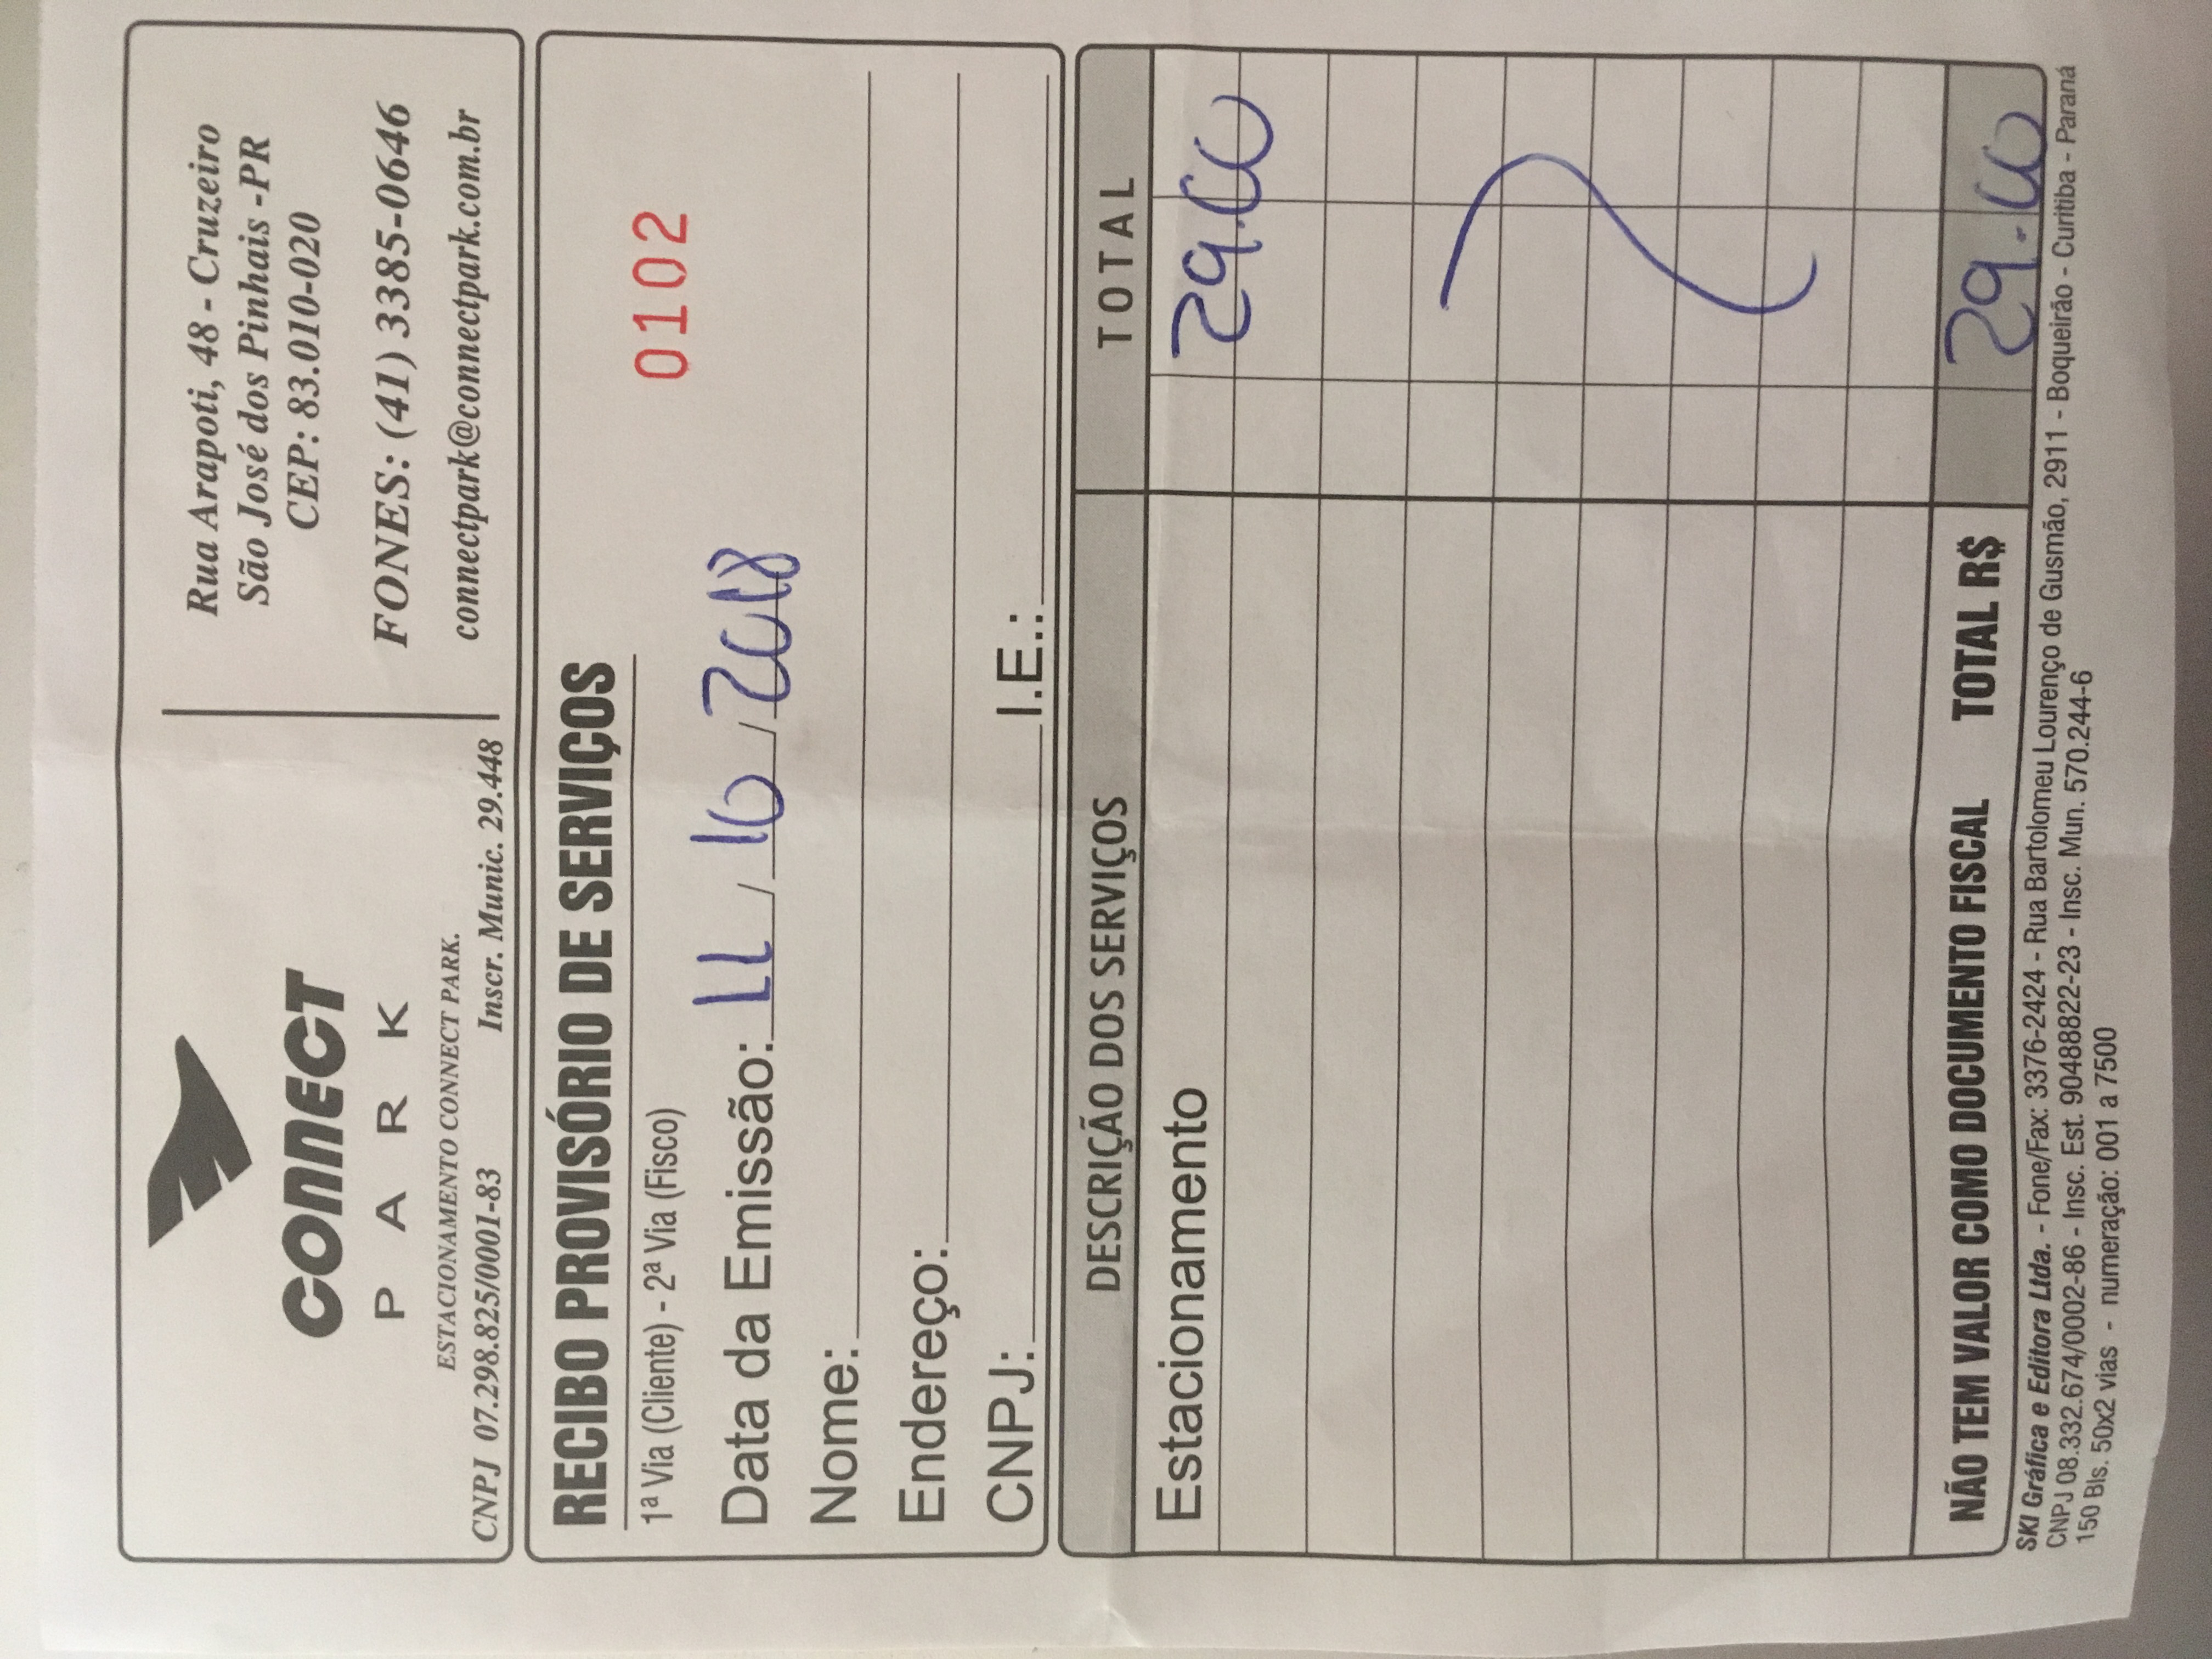 CONNECT
PARK
ESTACIONAMENTO CONNECT PARK.
CNPJ 07.298.825/0001-83 Inscr. Munic. 29.448
Rua Arapoti, 48 - Cruzeiro
São José dos Pinhais -PR
CEP: 83.010-020
FONES: (41) 3385-0646
connectpark@connectpark.com.br
RECIBO PROVISÓRIO DE SERVIÇOS
1ª Via (Cliente) - 2ª Via (Fisco)
0102
Data da Emissão: 11 / 10 / 2018
Nome:
Endereço:
CNPJ: I.E.:
DESCRIÇÃO DOS SERVIÇOS TOTAL
Estacionamento 29.00
NÃO TEM VALOR COMO DOCUMENTO FISCAL TOTAL R$ 29.00
SKI Gráfica e Editora Ltda. - Fone/Fax: 3376-2424 - Rua Bartolomeu Lourenço de Gusmão, 2911 - Boqueirão - Curitiba - Paraná
CNPJ 08.332.674/0002-86 - Insc. Est. 90488822-23 - Insc. Mun. 570.244-6
150 Bls. 50x2 vias - numeração: 001 a 7500